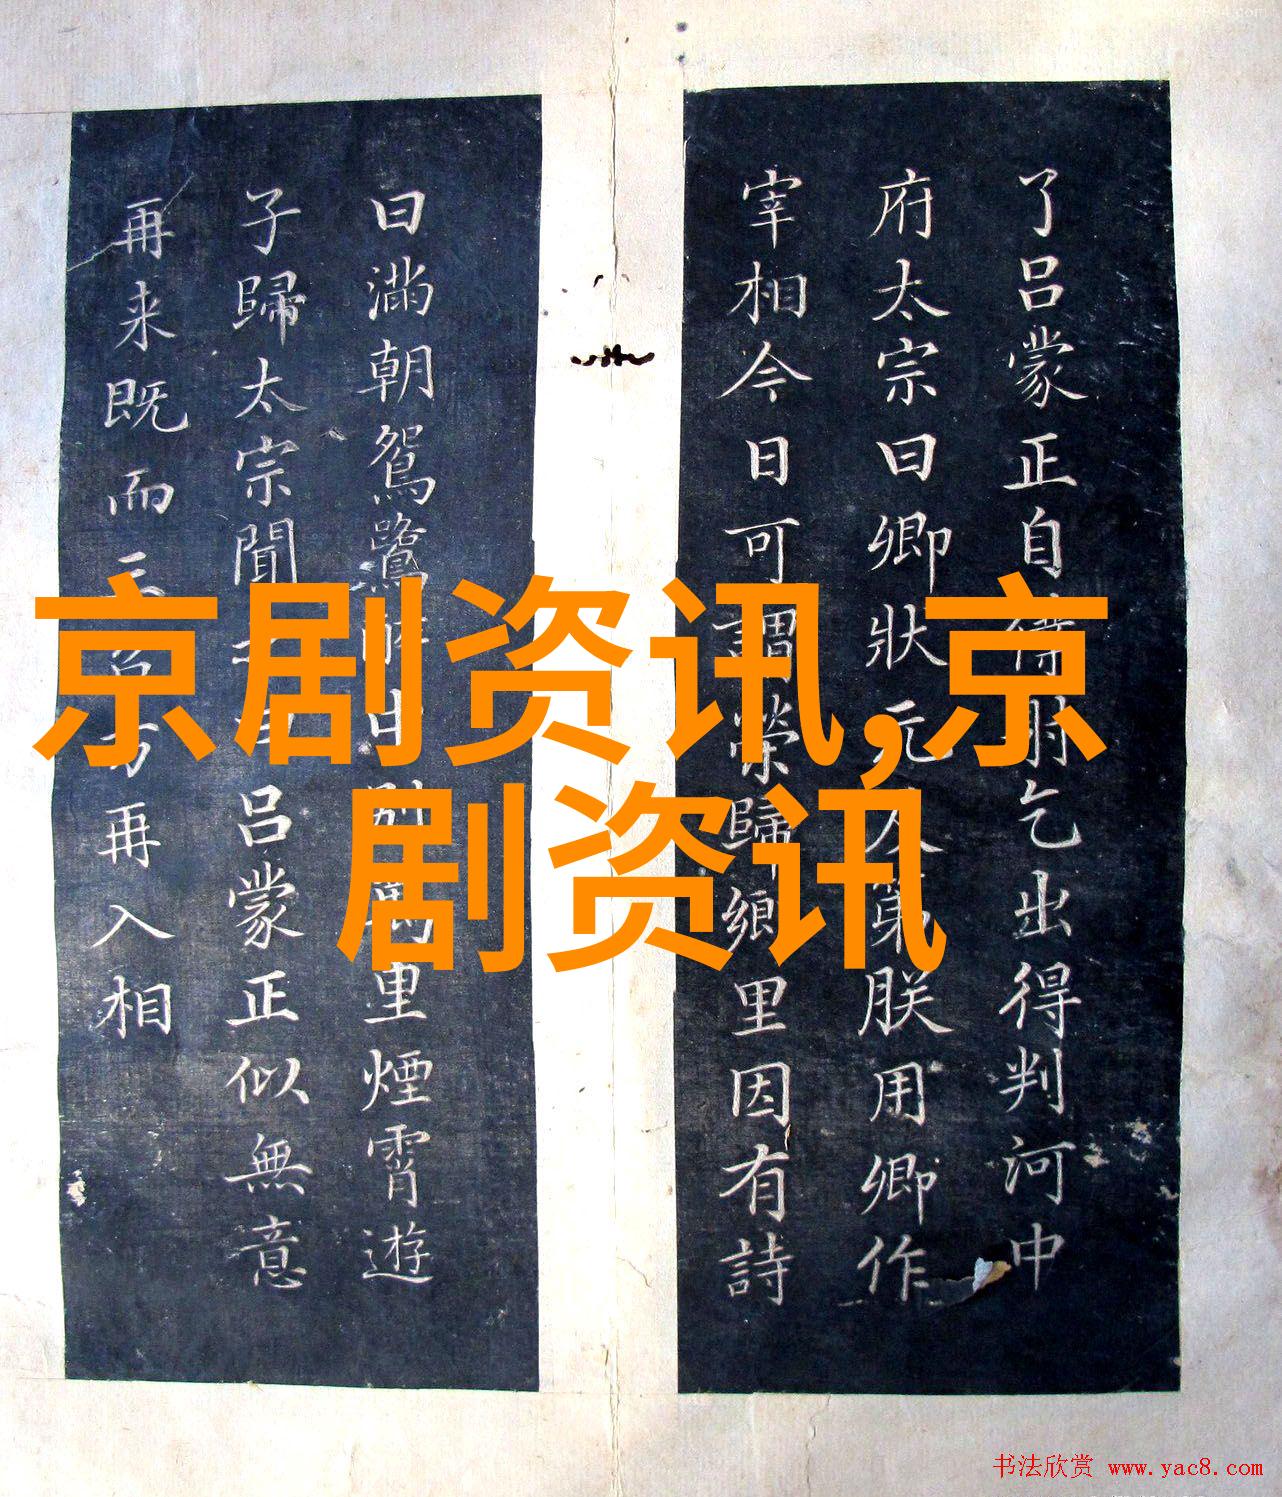 了吕蒙正自得乞出得判河中
府太宗曰卿狀元人第朕用卿作
宰相今日可謂榮歸鄉里因有詩
曰滿朝鴛鷺醉中別萬里煙霄遊
子歸太宗聞吕蒙正似無意
再来既而方再入相
京剧资讯,京
剧资讯
书法欣赏 www.yac8.com